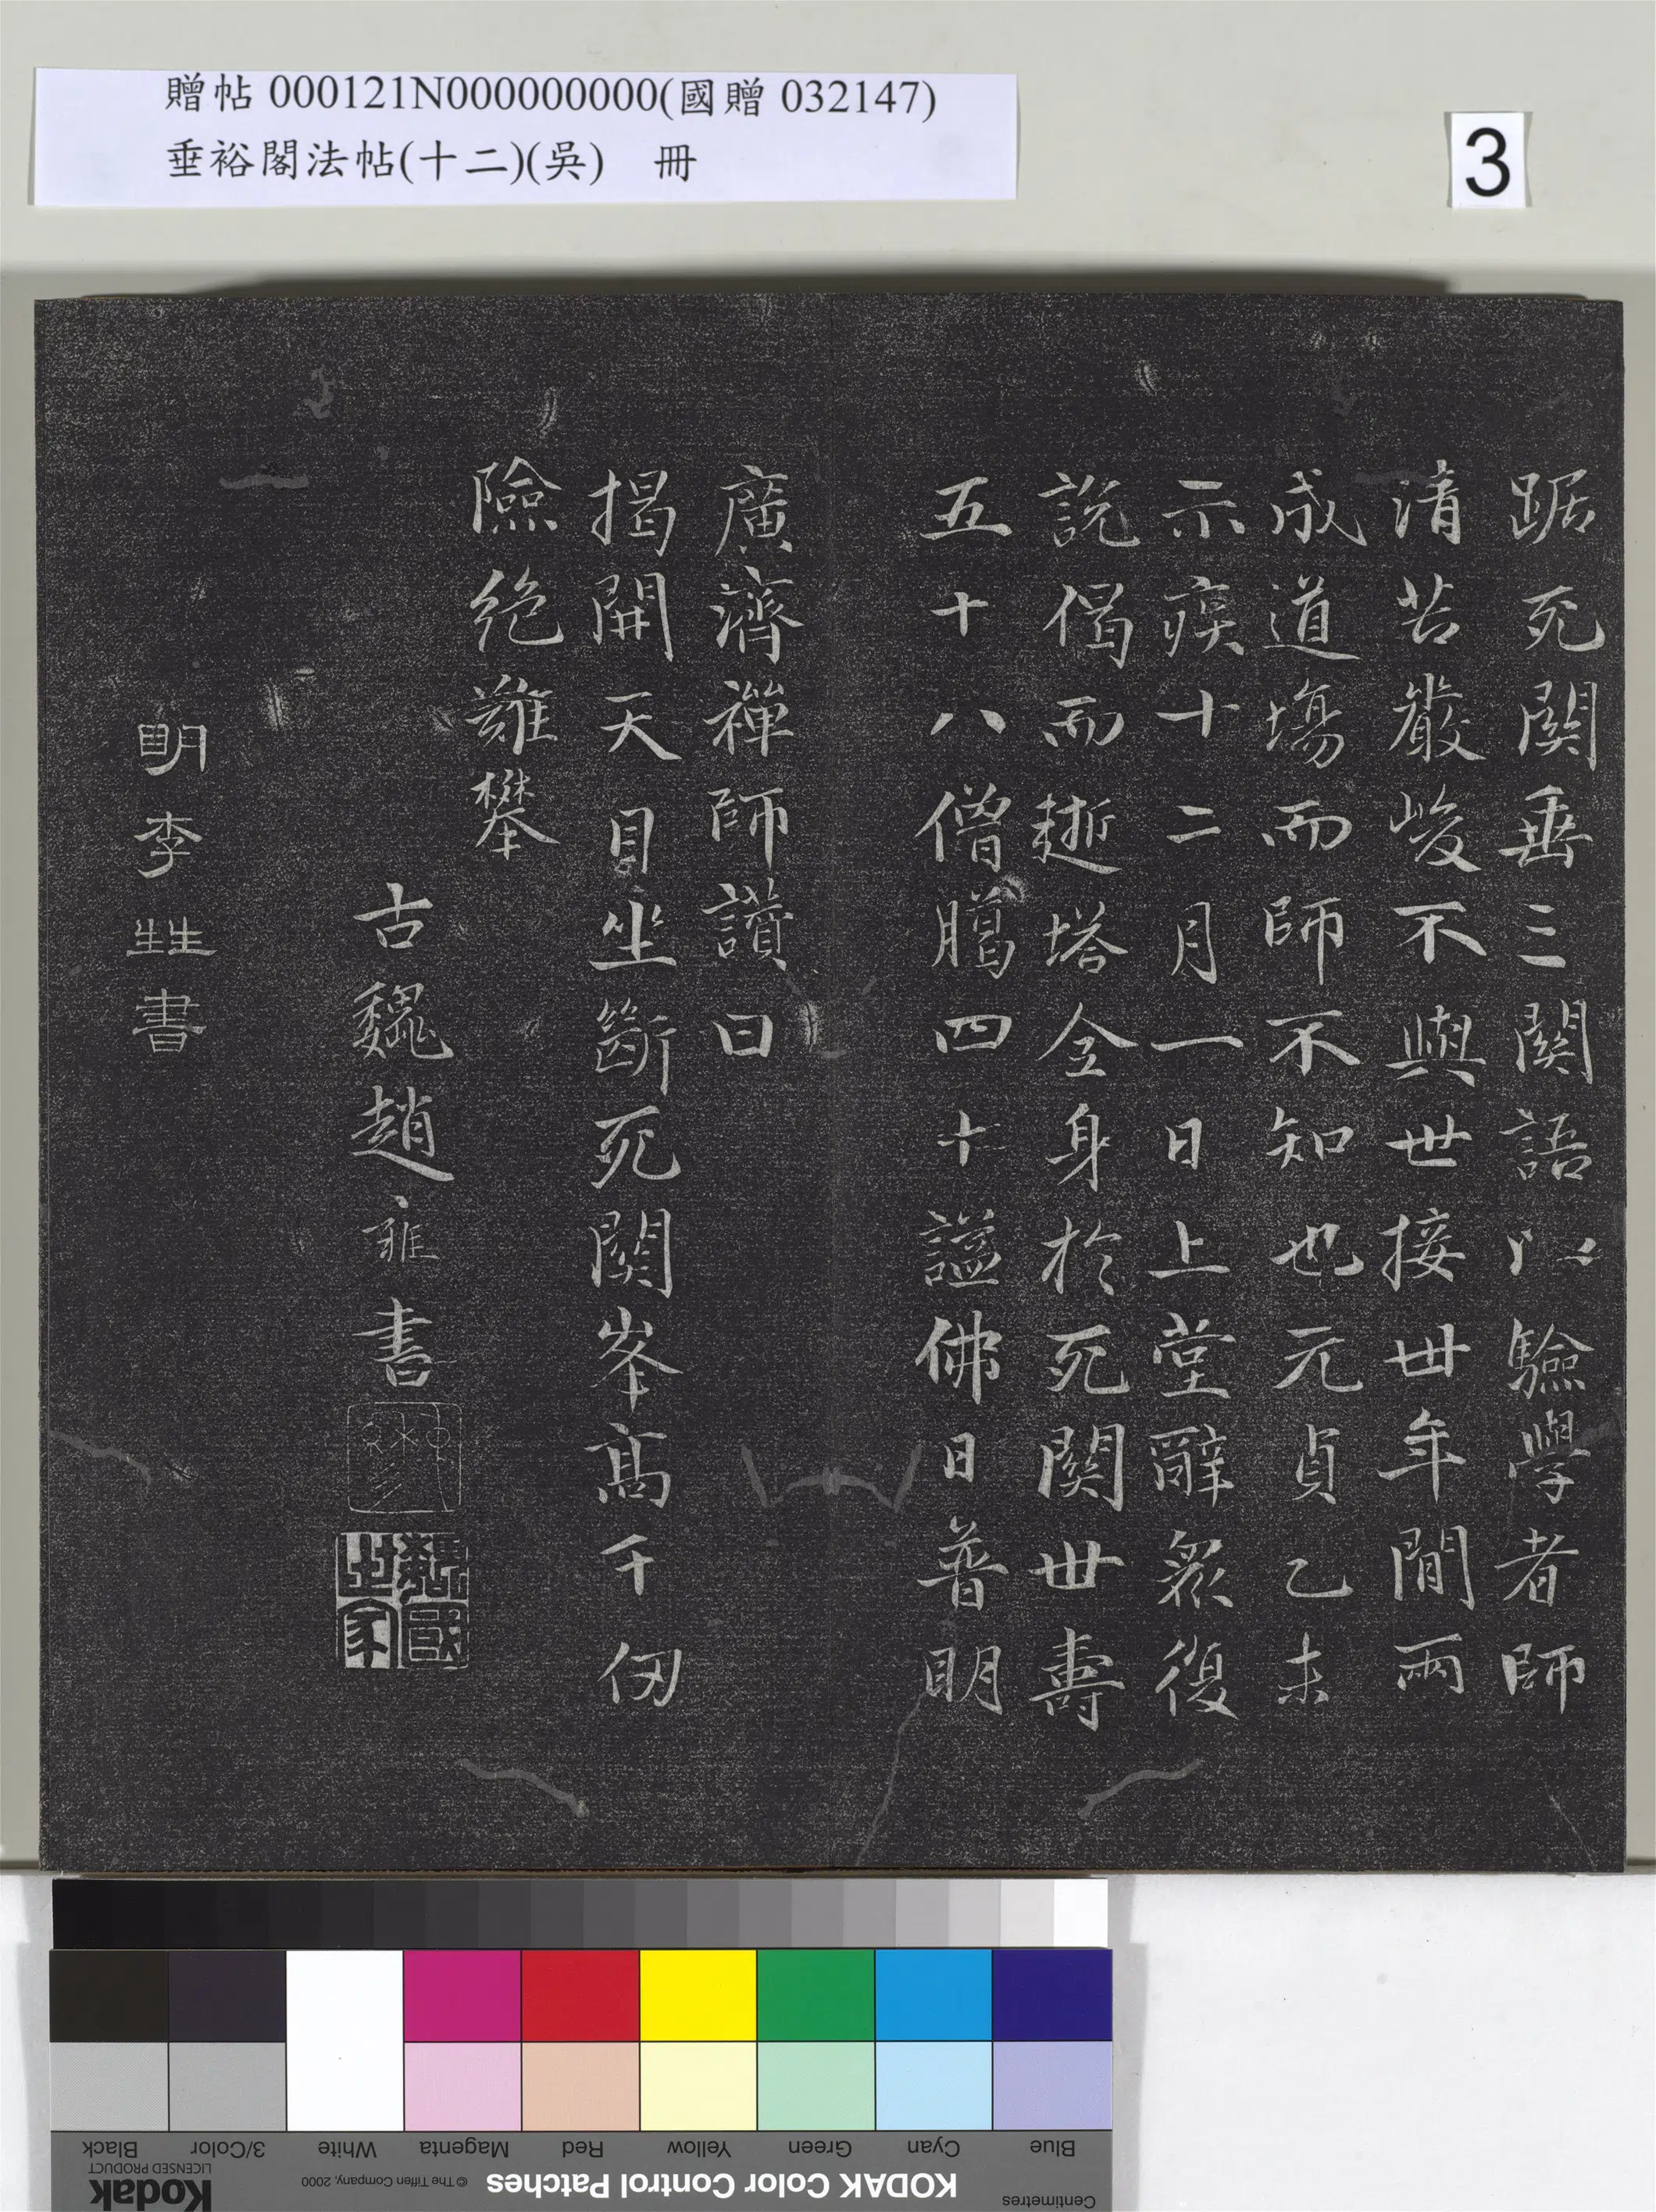 贈帖 000121N000000000(國贈 032147)
垂裕閣法帖(十二)(吳) 冊
3
踞死関垂三関語以驗學者師
清苦嚴峻不與世接丗年間兩
成道場而師不知也元貞乙未
示疾十二月一日上堂辭衆復
說偈而逝塔全身於死関世壽
五十八僧臈四十謚佛日普明
廣濟禪師讃曰
揭開天目坐斷死関峯髙千仞
險絶難攀
古魏趙雍書
魏國世家
明李甡書
Blue
Cyan
Green
Yellow
Red
Magenta
White
3/Color
Black
Centimetres
KODAK Color Control Patches
© The Tiffen Company, 2000
Kodak
LICENSED PRODUCT